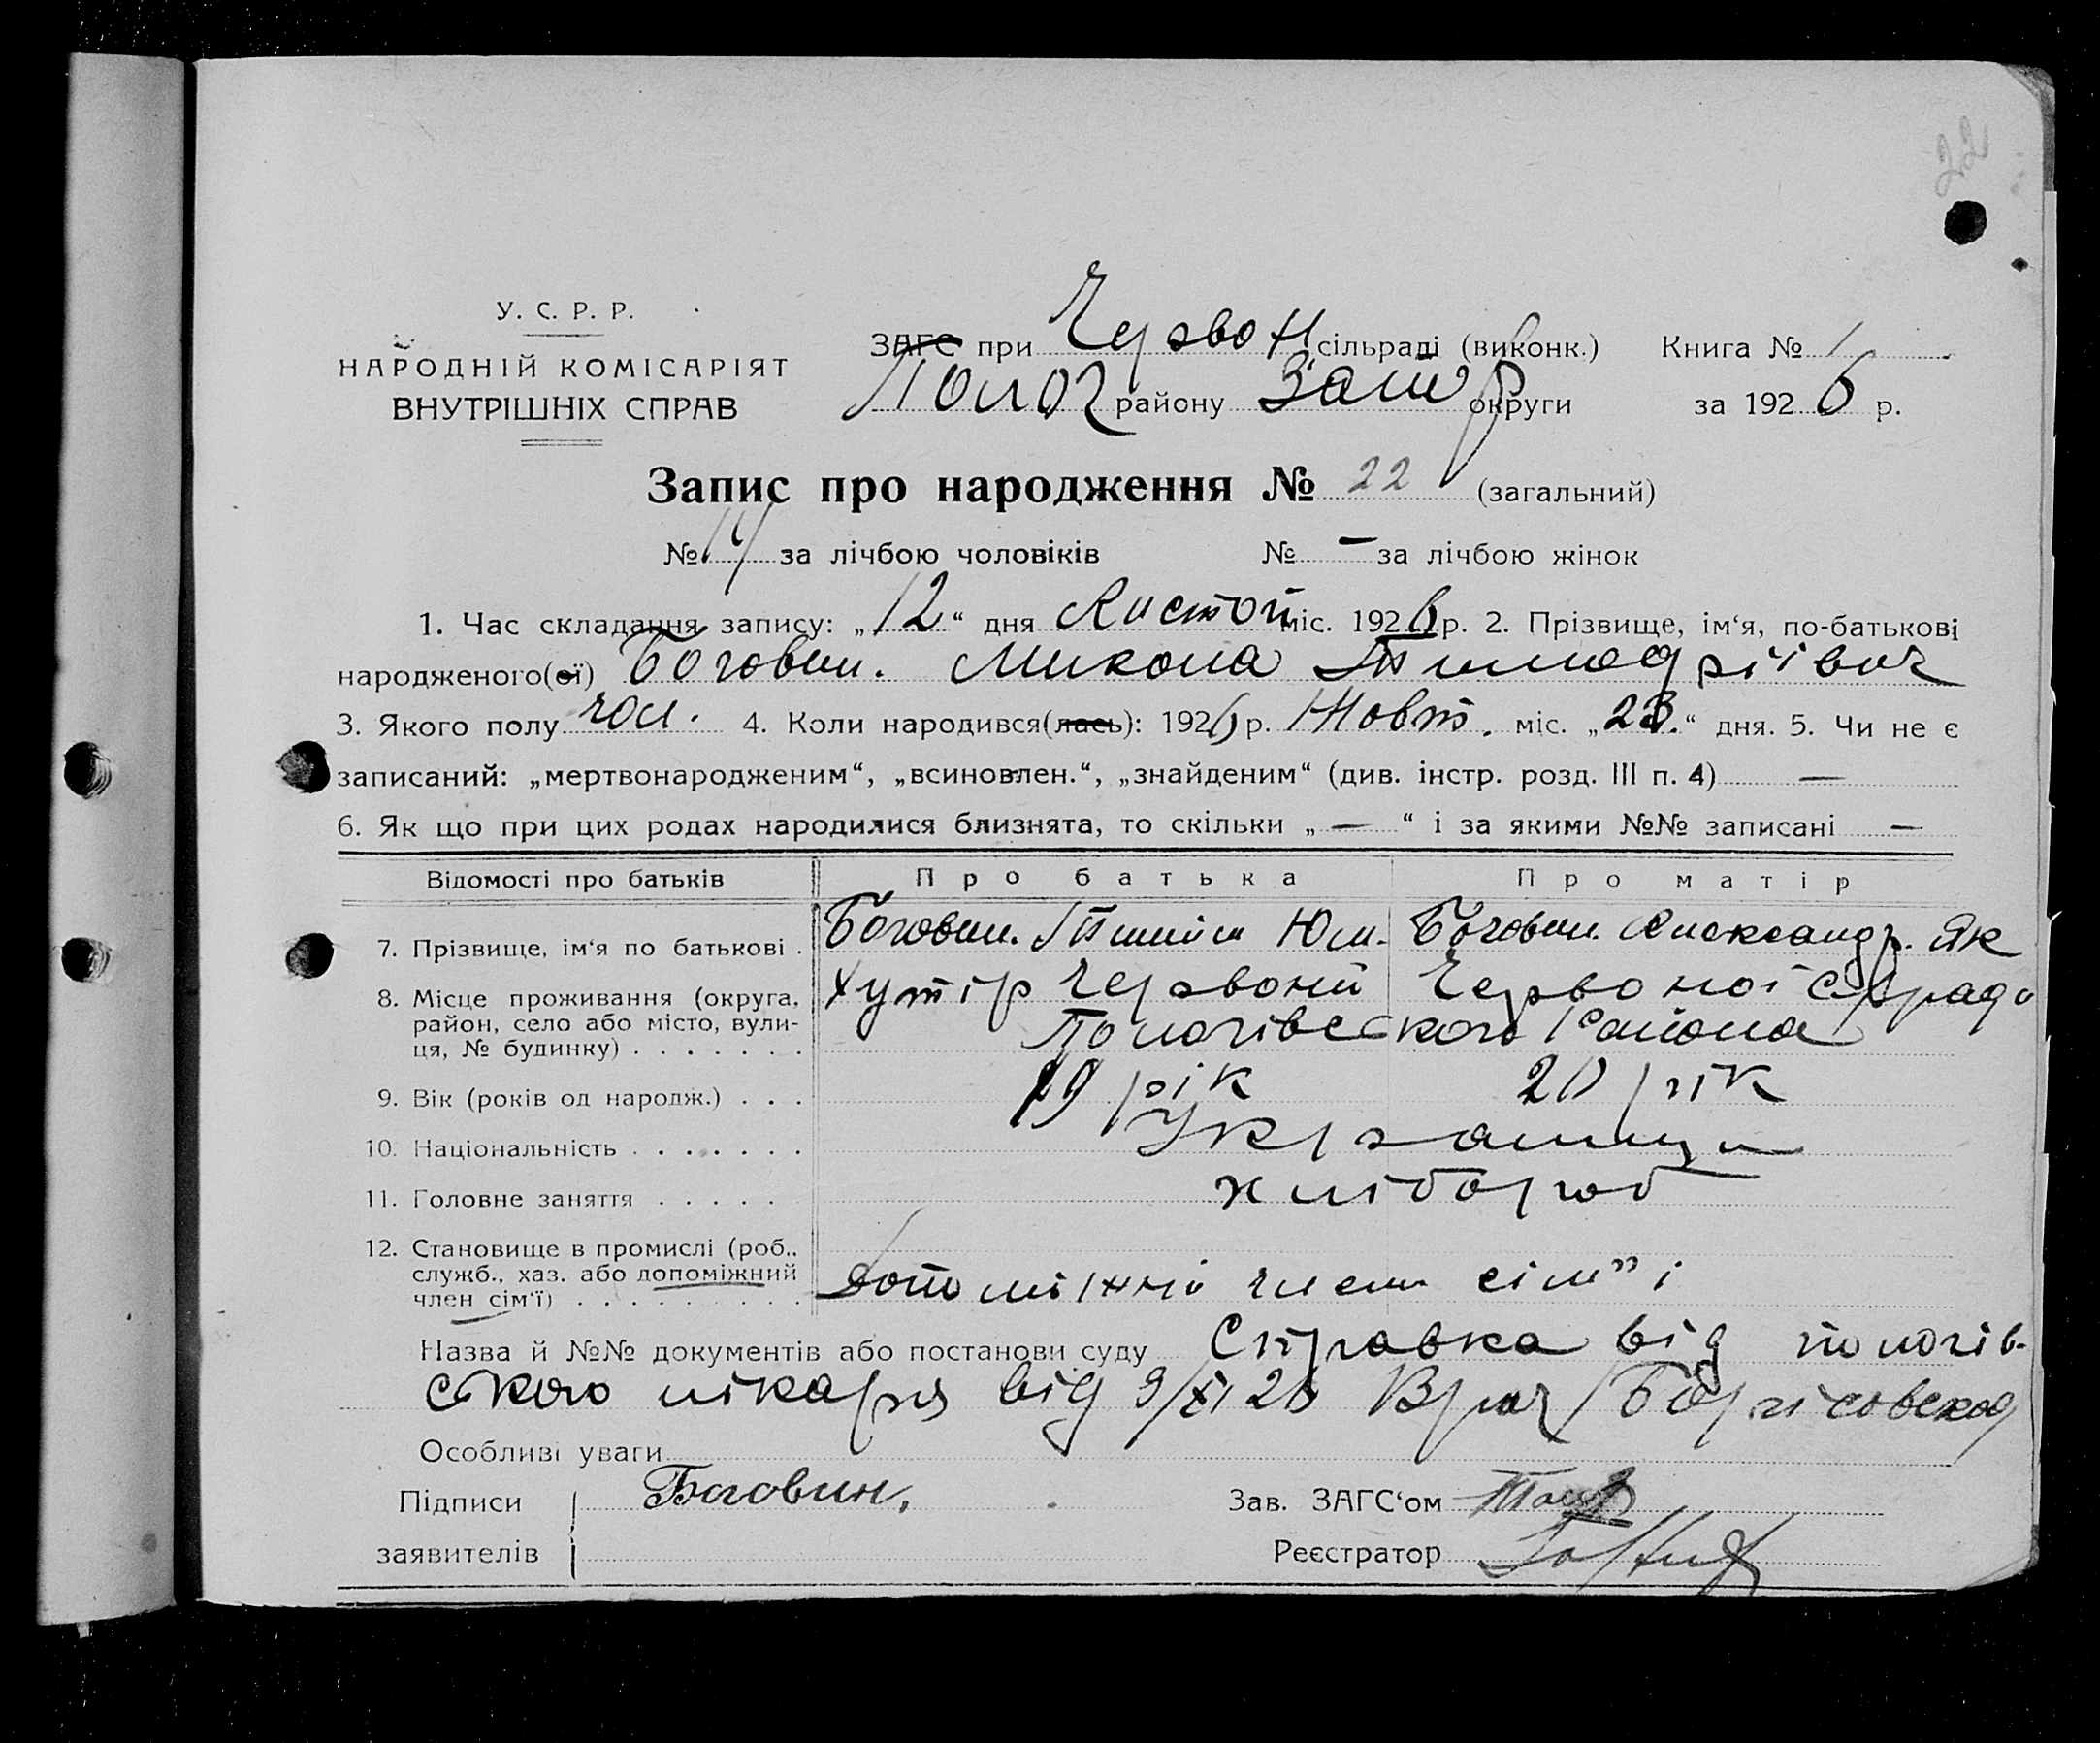 22
У. С. Р. Р.
НАРОДНІЙ КОМІСАРІЯТ
ВНУТРІШНІХ СПРАВ
ЗАГС при Червон сільраді (виконк.) Книга № 1
Полог району Запор округи за 1926 р.
Запис про народження № 22 (загальний)
№ 14 за лічбою чоловіків № — за лічбою жінок
1. Час складання запису: „12“ дня Листоп міс. 1926 р. 2. Прізвище, ім‘я, по-батькові
народженого(ої) Боговин. Микола
3. Якого полу чол. 4. Коли народився(лась): 1926 р. Жовт. міс. „23.“ дня. 5. Чи не є
записаний: „мертвонародженим“, „всиновлен.“, „знайденим“ (див. інстр. розд. III п. 4) —
6. Як що при цих родах народилися близнята, то скільки „—“ і за якими №№ записані —
Відомості про батьків Про батька Про матір
7. Прізвище, ім‘я по батькові . Боговин. Юл. Боговин. Александр. Як
8. Місце проживання (округа, район, село або місто, вулиця, № будинку) . . . . . . . хутір Червоний Червоної с/ради
Пологівського Района
9. Вік (років од народж.) . . . 19 рік 20 рік
10. Національність . . . . . . .
11. Головне заняття . . . . . хлібороб
12. Становище в промислі (роб.,
служб., хаз. або допоміжний
член сім‘ї) . . . . . . . . . Допоміжні член сім"ї
Назва й №№ документів або постанови суду Справка від пологів-
ського лікаря від 9/XI 26 Врач
Особливі уваги
Підписи Боговин. Зав. ЗАГС‘ом
заявителів Реєстратор